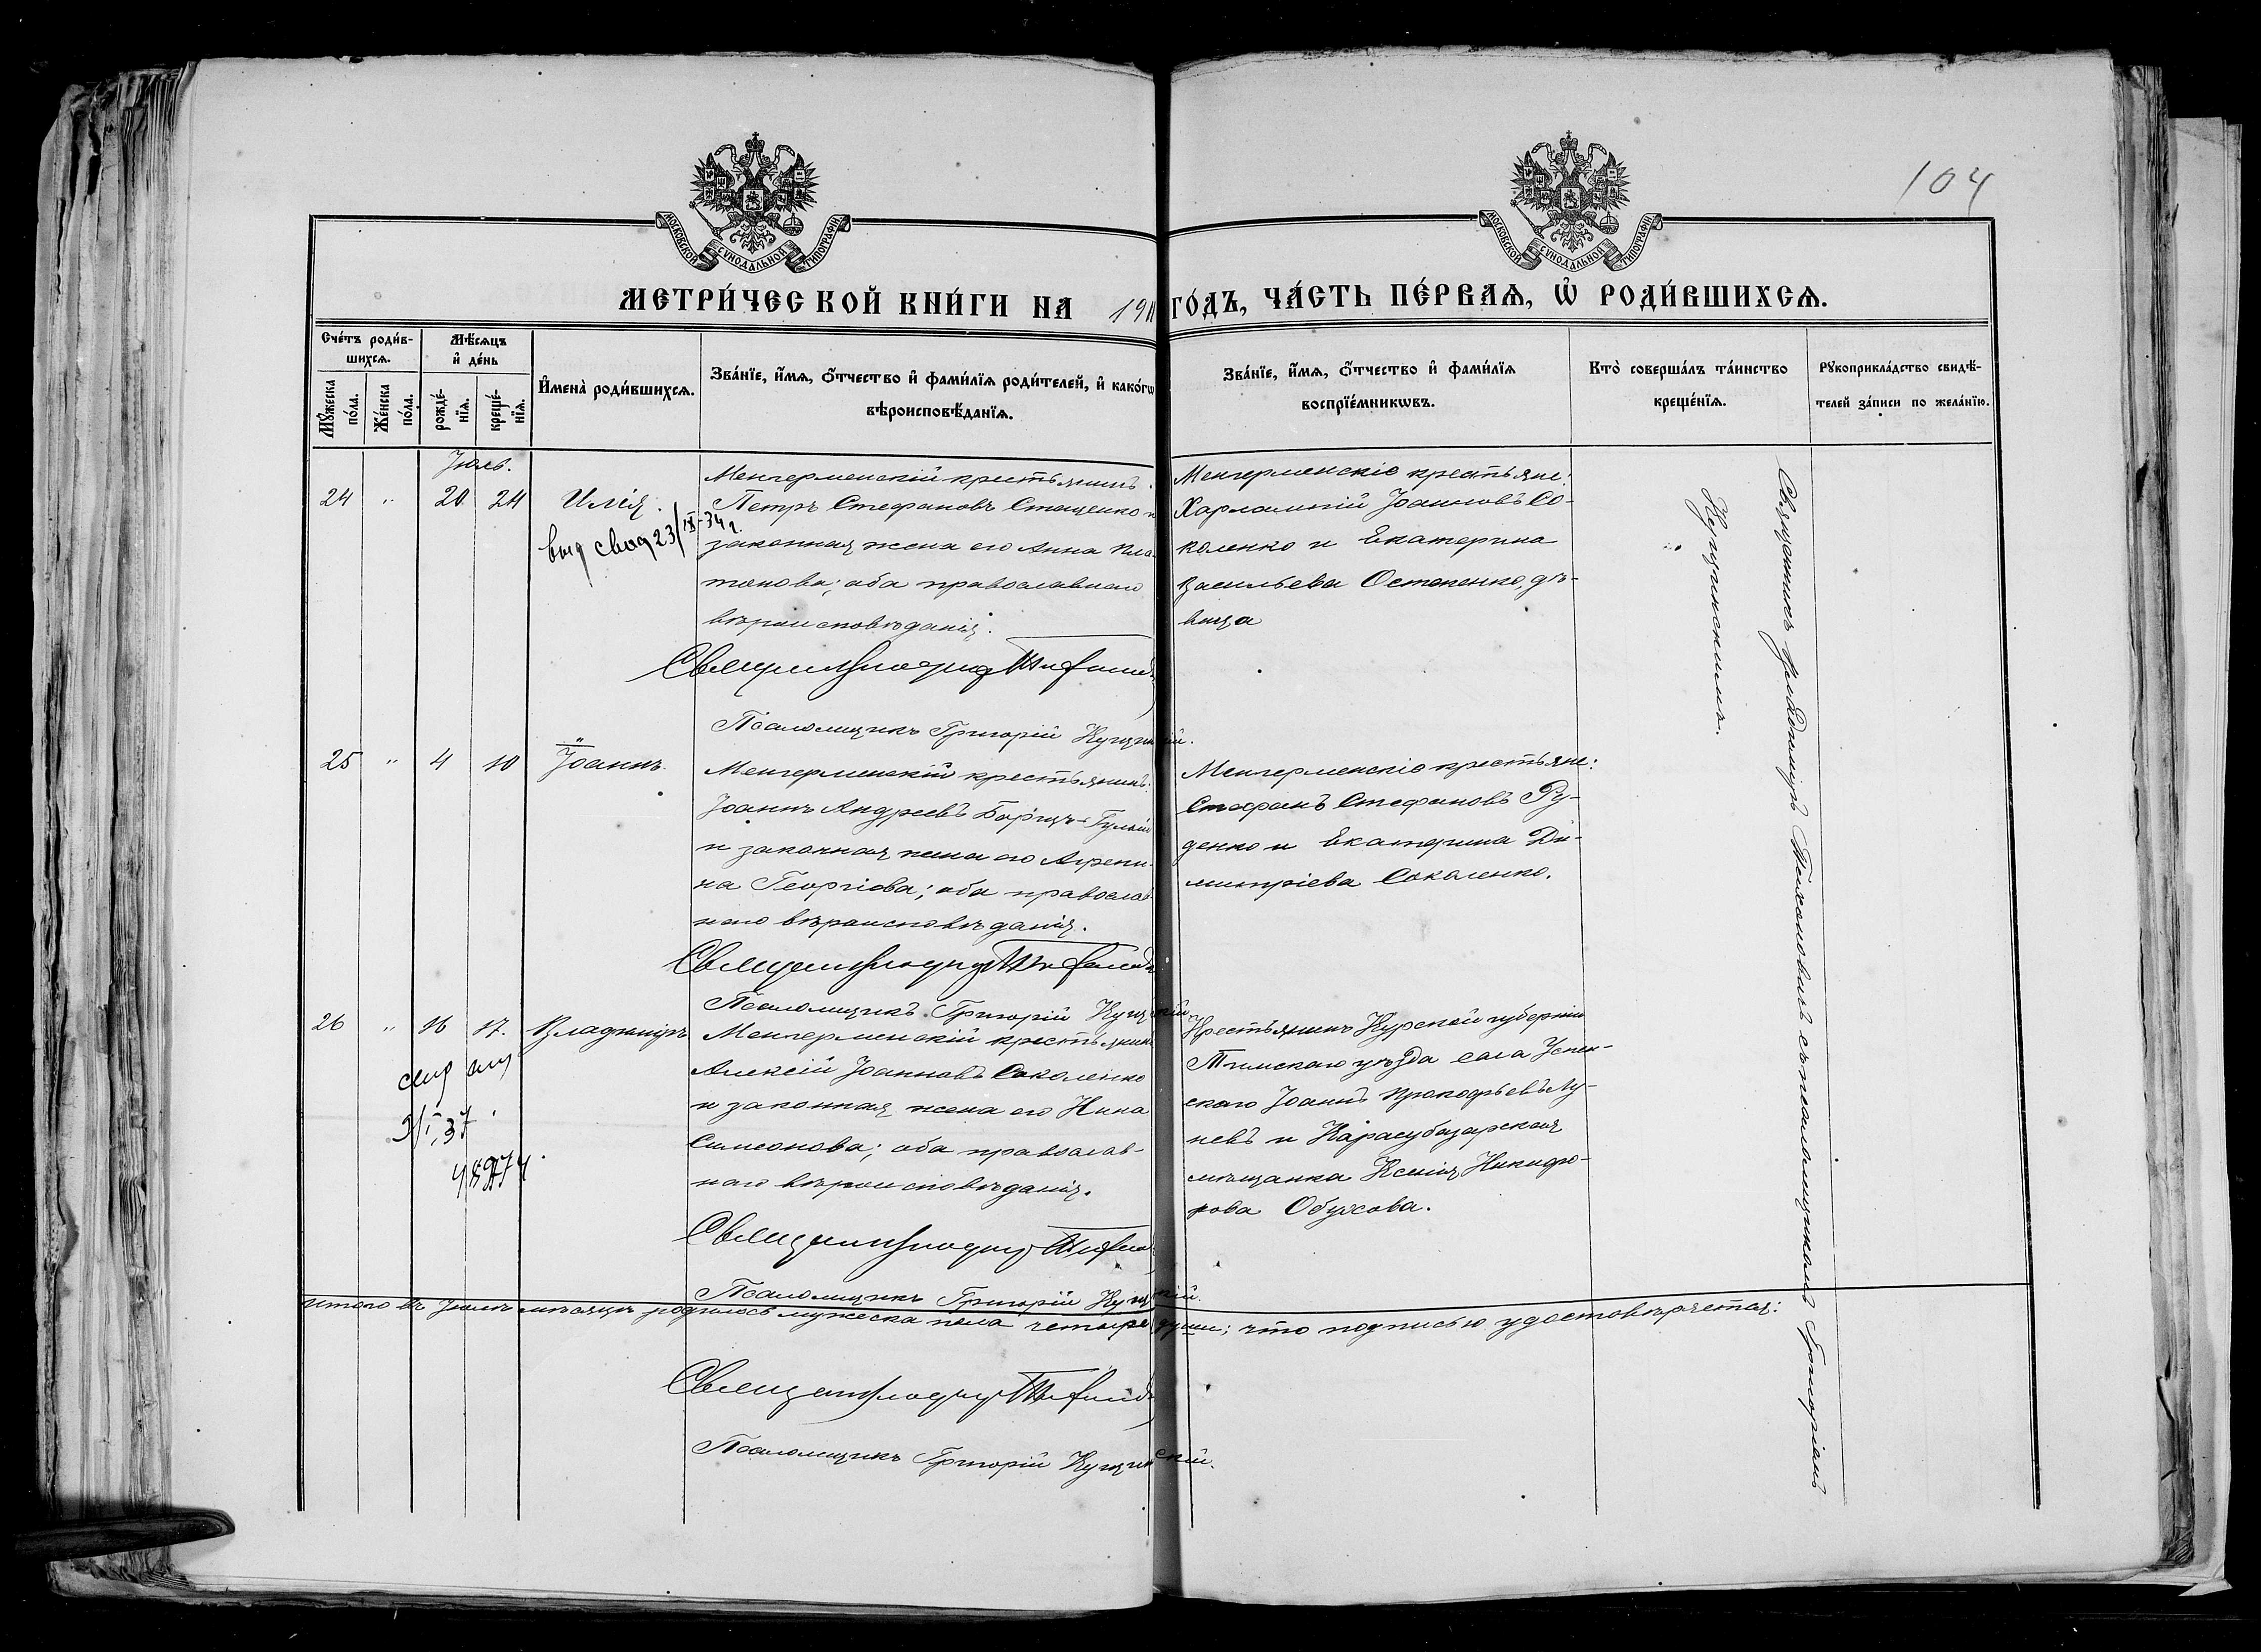 104
МОСКОВСКОЙ СѴНОДАЛЬНОЙ ТИПОГРАФІИ
МОСКОВСКОЙ СѴНОДАЛЬНОЙ ТИПОГРАФІИ
МЕТРИ́ЧЕСКОЙ КНИ́ГИ НА 191 ГО́ДЪ, ЧА́СТЬ ПЕ́РВАѦ, Ѡ҆ РОДИ́ВШИХСѦ.
Сче́тъ роди́в-
шихсѧ.
Мꙋ́жеска по́ла.
Же́нска по́ла.
Мѣ́сѧцъ
и҆ де́нь
рожде́-
нїѧ.
креще́-
нїѧ.
И҆мена̀ роди́вшихсѧ.
Зва́нїе, и҆́мѧ, ѻ҆́тчество и҆ фами́лїѧ роди́телей, и҆ како́гѡ
вѣроисповѣ́данїѧ.
Зва́нїе, и҆́мѧ, ѻ҆́тчество и҆ фами́лїѧ
воспрїе́мникѡвъ.
Кто̀ соверша́лъ та́инство
креще́нїѧ.
Рꙋкоприкла́дство свидѣ́-
телей за́писи по жела́нїю.
Іюль.
24 " 20 24 Илія.
выд свод 23/IX-34 г.
Менгерменскій крестьянинъ
Петръ Стефановъ Стаценко и
законная жена его Анна Пла-
тонова; оба православнаго
вѣроисповѣданія.
Псаломщикъ Григорій Кущинскій.
Менгерменскіе крестьяне:
Харлампій Іоанновъ Со-
коленко и Екатерина
Васильева Остапенко, дѣ-
вица
Священникъ Тихоновичъ съ псаломщикомъ Григоріемъ
Кущинскимъ.
25 " 4 10 Іоаннъ.
Менгерменскій крестьянинъ
Іоаннъ Андреевъ
и законная жена его Агрепи-
на Георгіева; оба православ-
наго вѣроисповѣданія.
Псаломщикъ Григорій Кущинскій.
Менгерменскіе крестьяне:
Стефанъ Стефановъ Ру-
денко и Екатерина Ди-
митріева Соколенко.
26 " 16 17. Владиміръ
Менгерменскій крестьянинъ
Алексій Іоанновъ Соколенко
и законная жена его Нина
Симеонова; оба православ-
наго вѣроисповѣданія.
Псаломщикъ Григорій Кущинскій.
Крестьянинъ Курской губерніи
Тимскаго уѣзда села Успен-
скаго Іоаннъ Прокофьевъ Лу-
невъ и Карасубазарская
мѣщанка Ксенія Никифо-
рова Обухова.
Итого въ Іюлѣ мѣсяцѣ родилось мужеска пола четыре души; что подписью удостовѣряется:
Псаломщикъ Григорій Кущинскій.